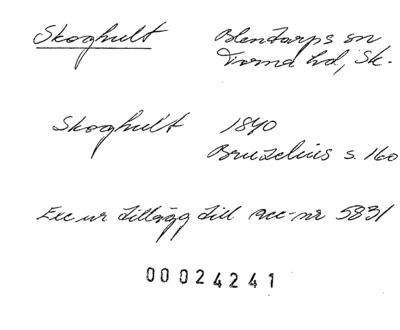 Skoghult Blentarps sn
Torna hd, Sk.
Skoghult 1840
Bruzelius s. 160
Exc ur Tillägg till acc-nr 5831
00024241